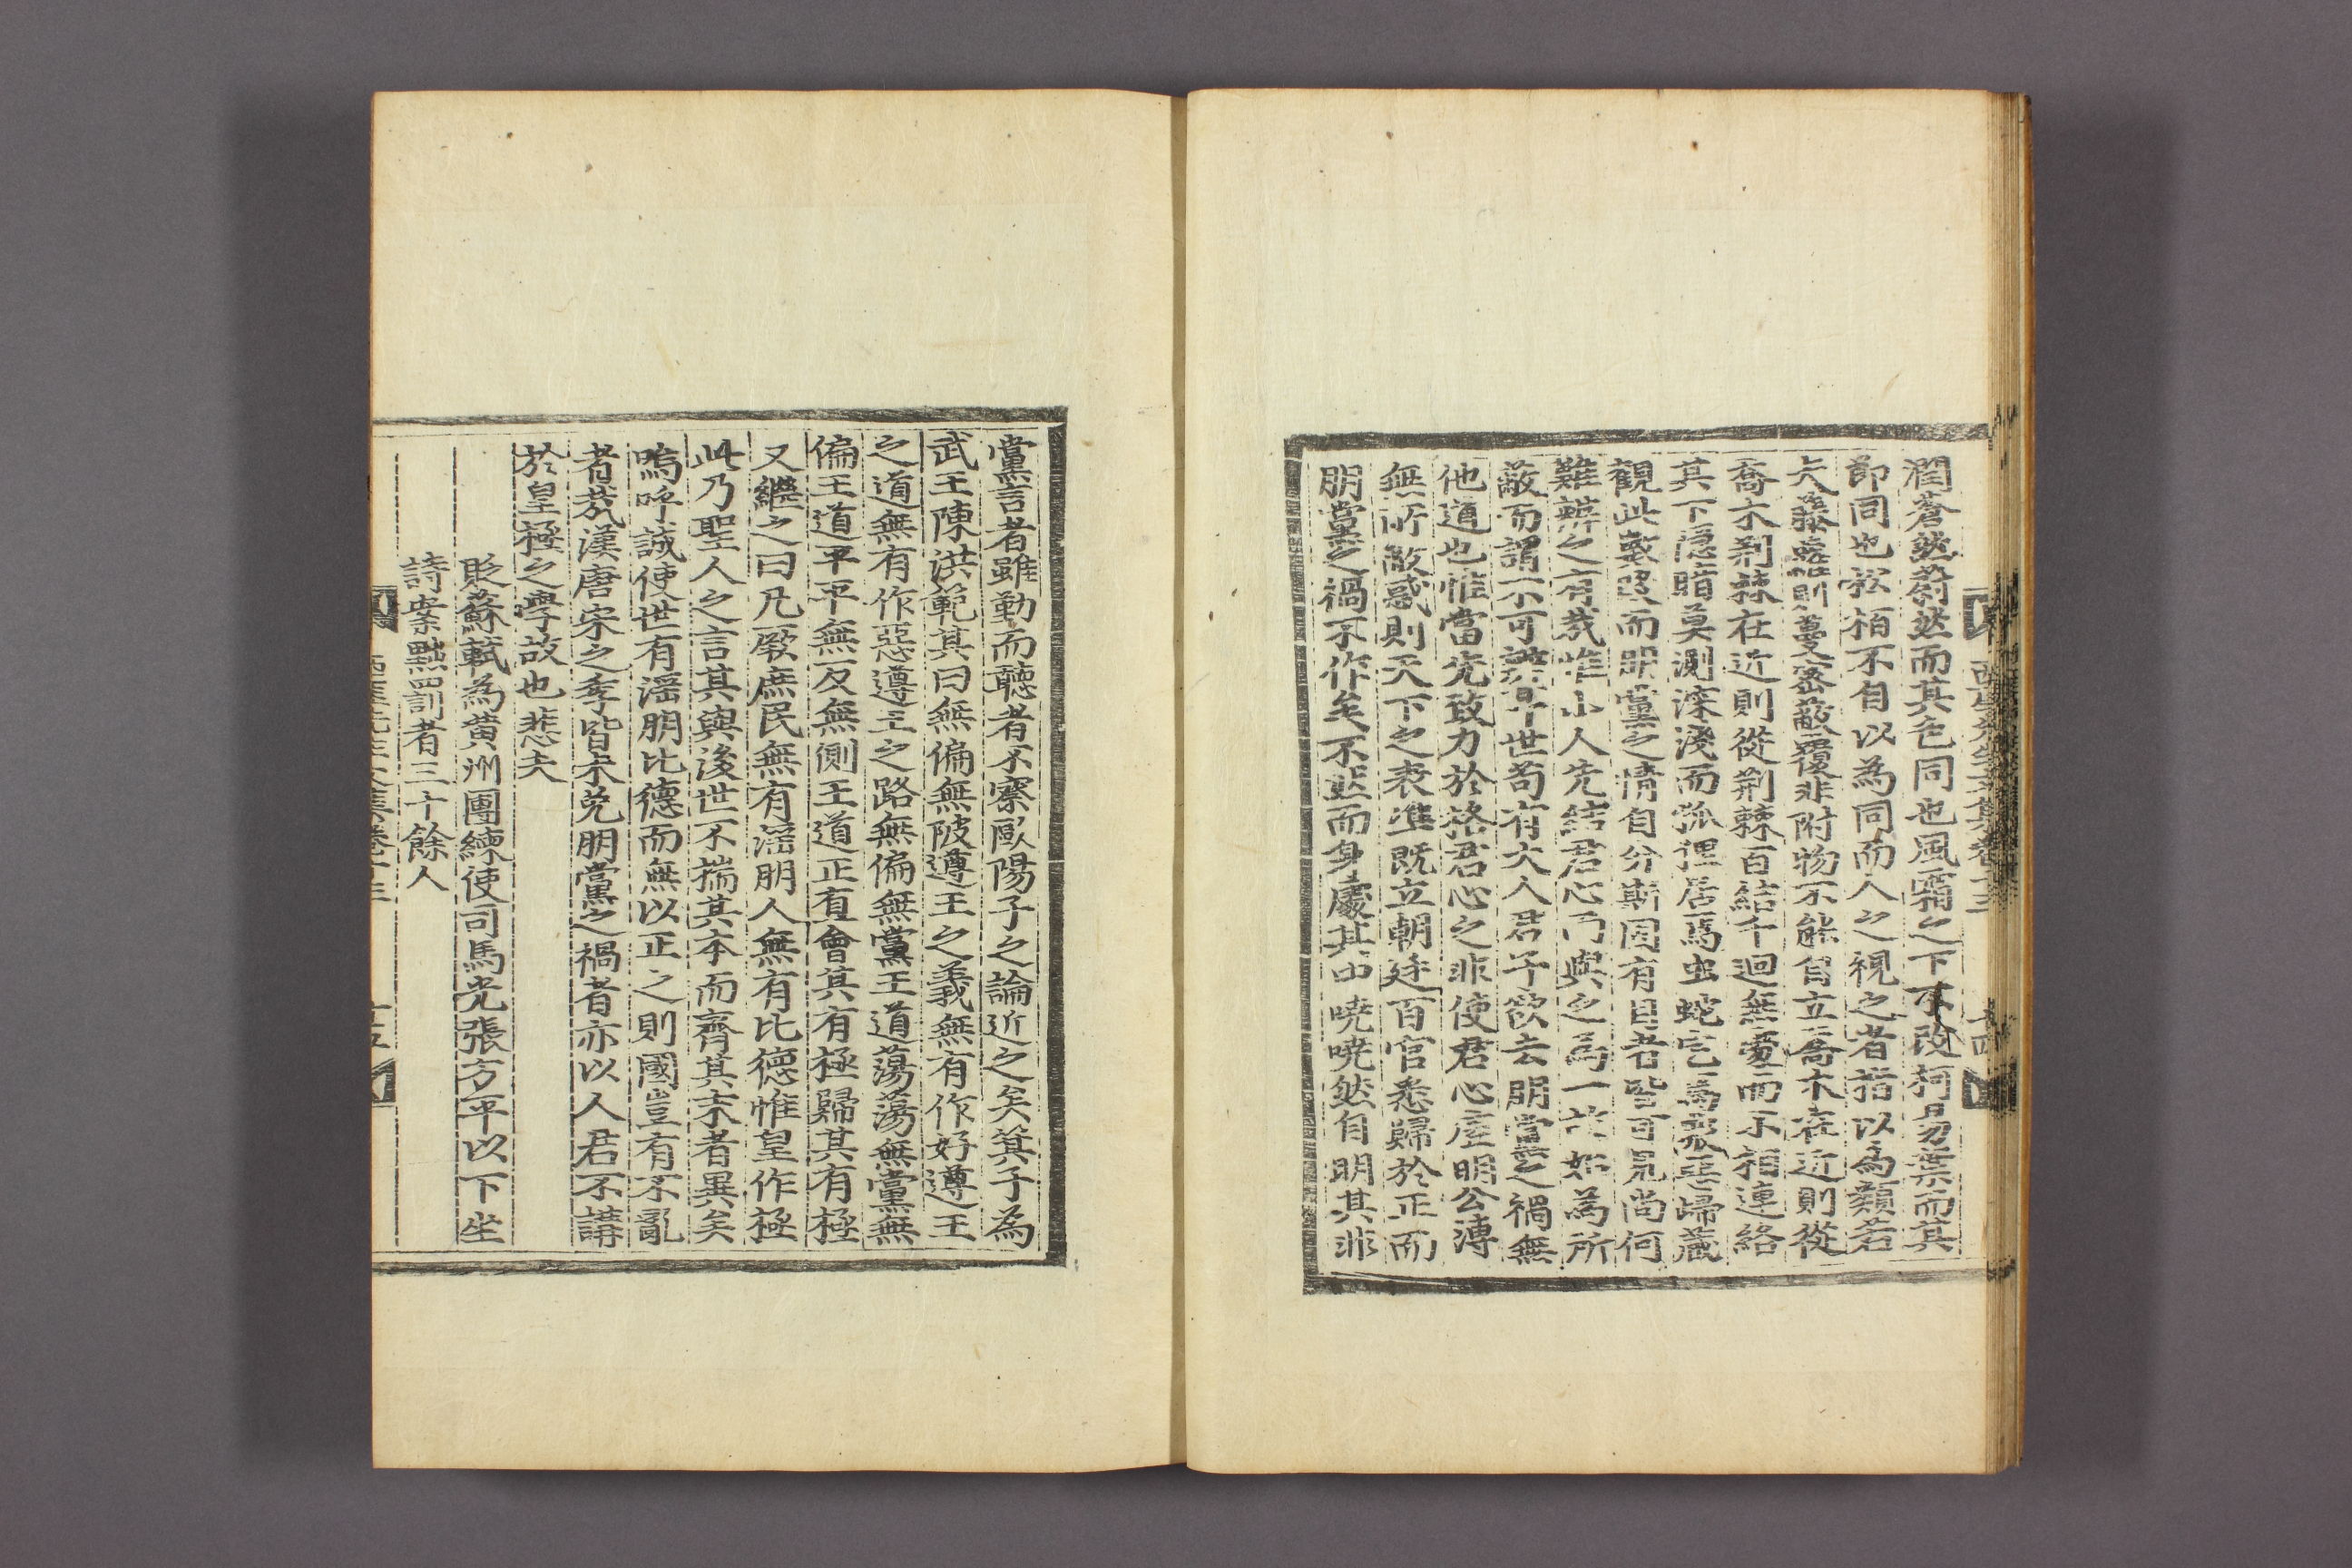 潤蒼然蔚然而其色同也風霜之下不改柯易葉而其
節同也松栢不自以為同而人之視之者指以為類若
夫藤蘿則蔓密蔽覆非附物不能自立喬木在近則從
喬木荆棘在近則從荆棘百結千迴無處而不相連絡
其下隱暗莫測深淺而狐狸居焉虫蛇宅焉衆惡歸藏
觀此數段而朋黨之情自分斯固有目者皆可見尚何
難辨之有哉惟小人先結君心而與之爲一故如為所
蔽而謂不可辨耳世苟有大人君子欲去朋黨之禍無
他道也惟當先致力於格君心之非使君心虛明公溥
無所蔽惑則天下之表準既立朝廷百官悉歸於正而
朋黨之禍不作矣不然而身處其中嘵嘵然自明其非
黨言者雖勤而聽者不察歐陽子之論近之矣箕子為
武王陳洪範其曰無偏無陂遵王之義無有作好遵王
之道無有作惡遵王之路無偏無黨王道蕩蕩無黨無
偏王道平平無反無側王道正直會其有極歸其有極
又繼之曰凡厥庶民無有淫朋人無有比德惟皇作極
此乃聖人之言其與後世不揣其本而齊其末者異矣
嗚呼誠使世有淫朋比德而無以正之則國豈有不亂
者哉漢唐宋之季皆未免朋黨之禍者亦以人君不講
於皇極之學故也悲夫
貶蘇軾為黃州團練使司馬光張方平以下坐
詩案黜罰者三十餘人